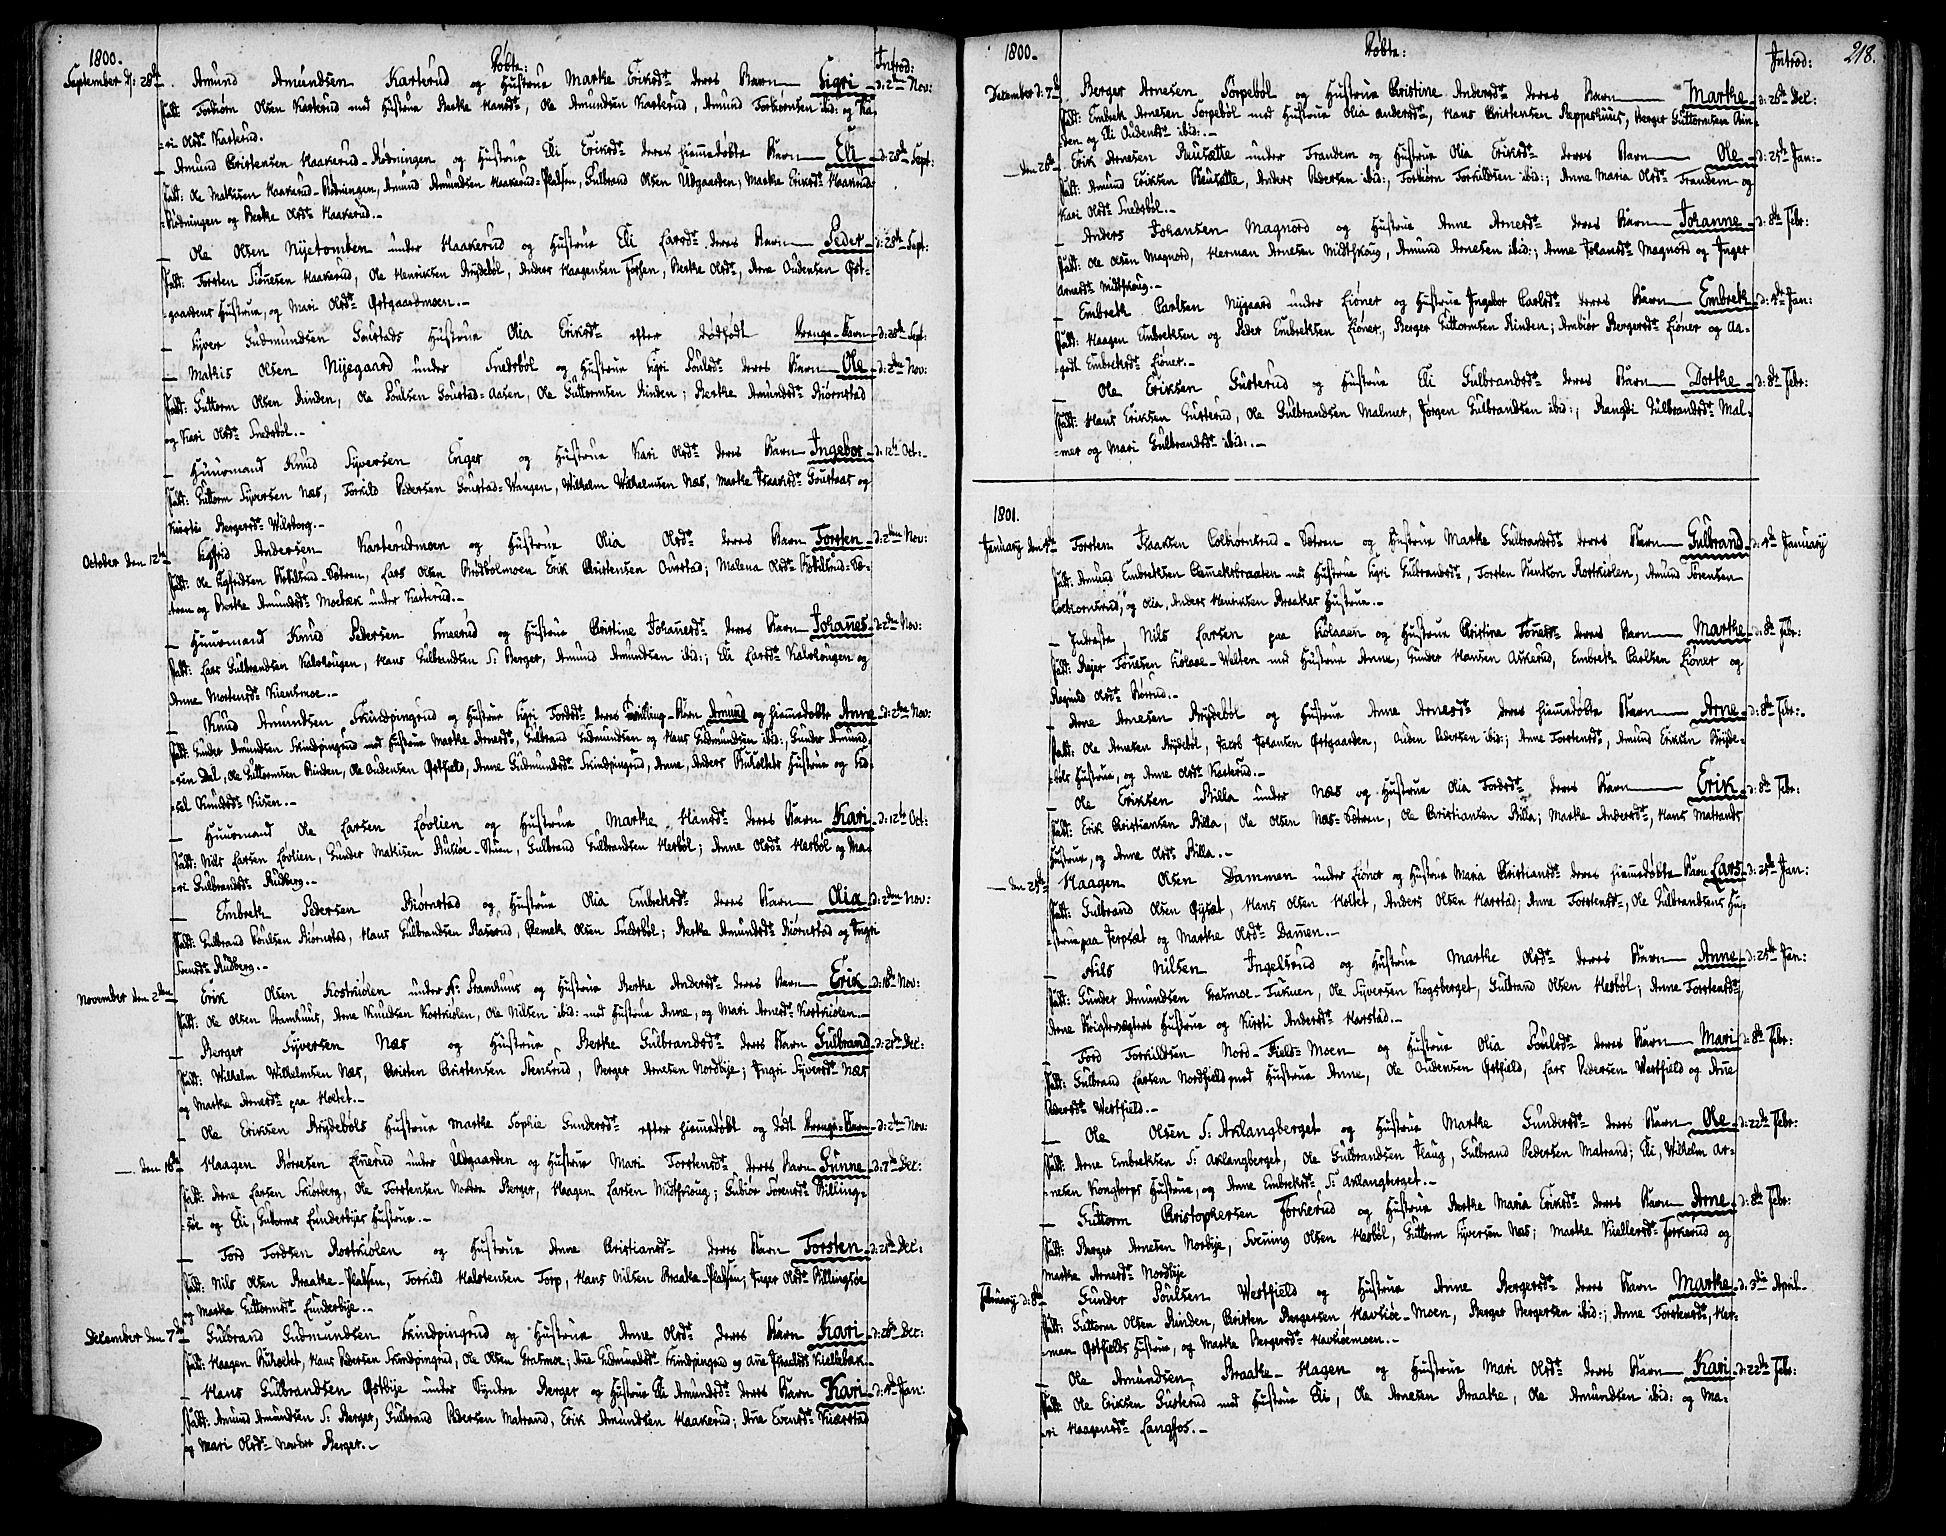 1800.
Døbte:
Introd:
September d: 28de Amund Amundsen Karterud og Hustrue Marke Eriksdt deres Barn Sigri d: 2den Nov:
fadt: Torbiørn Olsen Karterud med Hustrue Berke Hansdt, Ole Amundsen Karterud, Amund Torbiørnsen ibid: og Ka-
=ri Olsdt Karterud.
Amund Christensen Haakerud-Rødningen og Hustrue Eli Eriksdt deres hiemedøbte Barn Eli d: 28de Sept:
fadt: Ole Mathisen Haakerud-Rødningen, Amund Amundsen Haakerud-Pladsen, Gulbrand Olsen Udgaarden, Marke Eriksdt Haakerud-
=Rødningen og Berke Olsdt Haakerud.
Ole Olsen Nyetomten under Haakerud og Hustrue Eli Larsdt deres Barn Peder d: 28de Sept:
fadt: Torsten Siønesen Haakerud, Ole Henriksen Brydebøl, Anders Haagensen Forsen, Berke Olsdt, Arne Oudensen Øst-
=gaardens Hustrue, og Mari Olsdt Østgaardmoen.
Syver Gudmundsen Goustads Hustrue Olia Eriksdt efter dødfødt Drenge-Barn d: 28de Sept:
Mathis Olsen Nyegaard under Snedsbøl og Hustrue Sigri Poulsdt deres Barn Ole d: 2den Nov:
fadt: Guttorm Olsen Rinden, Ole Poulsen Goustad-Aasen, Ole Guttormsen Rinden; Berke Amundsdt Biørnstad
og Kari Olsdt Snedsbøl.
Huusmand Knud Syversen Enger og Hustrue Kari Olsdt deres Barn Ingebor d: 12te Oct:
fadt: Guttorm Syversen Næs, Torkild Pedersen Goustad-Wangen, Wilhelm Wilhelmsen Næs, Marke Isaaksdt Goustad og
Kirsti Bergersdt Wilsborg.
October den 12te Sigfrid Andersen Karterudmoen og Hustrue Olia Olsdt deres Barn Torsten d: 2den Nov:
fadt: Ole Sigfridsen Kiellsrud-Sætren, Lars Olsen Brødbølmoen Erik Christensen Ourstad; Malena Olsdt Kiellsrud-Sæ-
tren og Berke Amundsdt Moebæk under Karterud.
Huusmand Knud Pedersen Smeerud og Hustrue Christine Johanesdt deres Barn Johannes d: 2den Nov:
fadt: Lars Gulbrandsen Kalskougen, Hans Gulbrandsen S: Berger, Amund Amundsen ibid:; Eli Larsdt Kalskougen og
Anne Mortensdt Kiensmoe.
Knud Amundsen Skindpingrud og Hustrue Sigri Tordsdt deres Tvilling-Børn Amund og hiemedøbte Anne d: 2den Nov:
fadt: Gunder Amundsen Skindpingrud med Hustrue Marke Arnesdt, Gulbrand Gudmundsen og Hans Gudmundsen ibid:, Gunder Amund-
=sen Dal, Ole Guttormsen Rinden, Ole Oudensen Østfield, Anne Gudmundsdt Skindpingrud, Anne, Anders Buholtets Hustrue og Sid-
sel Knudsdt Kiisen.
Huusmand Ole Larsen Løvlien og Hustrue Marke Hansdt deres Barn Kari d: 12te Oct:
fadt: Nils Larsen Løvlien, Gunder Mathisen Buhøe-Stuen, Gulbrand Gulbrandsen Hesbøl; Anne Olsdt Hesbøl og Ma-
=ri Gulbrandsdt Rudberg.
Embrek Pedersen Biørnstad og Hustrue Olia Embreksdt deres Barn Olia d: 2den Nov:
fadt: Gulbrand Poulsen Biørnstad, Hans Gulbrandsen Raserud, Clemet Olsen Snedsbøl; Berke Amundsdt Biørnstad og Ingri
Svensdt Rudberg.
November den 2den Erik Olsen Kostkiølen under N: Bramhuus og Hustrue Berke Andersdt deres Barn Erik d: 18de Nov:
fadt: Ole Olsen Bramhuus, Arne Knudsen Kortkiølen, Ole Nilsen ibid: med Hustrue Anne, og Mari Arnesdt Kortkiølen.
Berger Syversen Næs og Hustrue Berke Gulbrandsdt deres Barn Gulbrand d: 21de Dec:
fadt: Wilhelm Wilhelmsen Næs, Christen Christensen Stensrud, Berger Arnesen Nordbye; Ingri Syversdt Næs
og Marke Arnesdt paa Holtet.
Ole Eriksen Brydebøls Hustrue Marke Sophie Gundersdt efter hiemedøbt og dødt Drenge-Barn d: 2den Nov:
den 16de Haagen Børresen Linerud under Udgaarden og Hustrue Mari Torstensdt deres Barn Gunne d: 7de Dec:
fadt: Arne Larsen Skiørberg, Ole Torstensen Nordre Berger, Haagen Larsen Midtskoug; Gubiør Sørensdt Billing-
=søe og Eli, Guttorms Lunderbyes Hustrue.
Tord Tordsen Rortkiølen og Hustrue Anne Christiansdt deres Barn Torsten d: 21de Dec:
fadt: Nils Olsen Braate-Pladsen, Torkild Halstensen Torp, Hans Nilsen Braate-Pladsen; Inger Olsdt Billingsøe
og Marke Guttormsdt Lunderbye.
December den 7de Gulbrand Gudmundsen Skindpingrud og Hustrue Anne Olsdt deres Barn Kari d: 26de Dec:
fadt: Haagen Buholtet, Hans Pedersen Skindpingrud, Ole Olsen Grasmoe; Ane Gudmundsdt Skindpingrud og Ane Pouelsdt Kiellebæk.
Hans Gulbrandsen Østbye under Syndre Berger og Hustrue Eli Amundsdt deres Barn Kari d: 4de Jan:
fadt: Amund Amundsen S: Berger, Gulbrand Pedersen Matrand, Erik Amundsen Haakerud; Ane Evensdt Kierstad
og Mari Olsdt Nordre Berger.
1800.
Døbte:
Introd:
218.
December d: 7de Berger Arnesen Torpebøl og Hustrue Christine Andersdt deres Barn Marthe d: 26de Dec:
fadt: Embrek Arnesen Torpebøl med Hustrue Olia Andersdt, Hans Christensen Papperhuus, Berger Guttormsen Rin-
den og Eli Oudensdt ibid:.
den 26de Erik Arnesen Reusætte under Trandem og Hustrue Olia Eriksdt deres Barn Ole d: 25de Jan:
fadt: Amund Eriksen Reusætte, Anders Pedersen ibid:, Torbiørn Torkildsen ibid:; Anne Maria Olsdt Trandem og
Kari Olsdt Snedsbøl.
Anders Johansen Magnord og Hustrue Anne Arnesdt deres Barn Johanne d: 8de Febr:
fadt: Ole Olsen Magnord, Herman Arnesen Midtskoug, Amund Arnesen ibid:; Anne Johansdt Magnord og Inger
Arnesdt Midtskoug.
Embrek Carlsen Nygaard under Liøner og Hustrue Ingebor Carlsdt deres Barn Embrek d: 4de Jan:
fadt: Haagen Embreksen og Peder Embreksen Liøner, Berger Guttormsen Rinden; Ambiør Bergersdt Liøner og Aa-
=godt Embreksdt Liøner.
Ole Eriksen Gusterud og Hustrue Eli Gulbrandsdt deres Barn Dorthe d: 8de Febr:
fadt: Hans Eriksen Gusterud, Ole Gulbrandsen Malmer, Jørgen Gulbrandsen ibid:; Rangdi Gulbrandsdt Mal-
=mer og Mari Gulbrandsdt ibid:.
1801.
January den 4de Torsten Isaaksen Colbiørnsrud-Sætren og Hustrue Marke Gulbrandsdt deres Barn Gulbrand d: 4de January
fadt: Amund Embreksen Clemetsbraaten med Hustrue Sigri Gulbrandsdt, Torsten Rortkiølen, Amund Sørensen
Colbiørnsrud, og Olia, Anders Henriksen Braates Hustrue.
Inderste Nils Larsen paa Kiølaaen og Hustrue Christine Tønesdt deres Barn Marthe d: 8de Febr:
fadt: Rejer Tønesen Kiølaae-Welten med Hustrue Anne, Gunder Hansen Askerud, Embrek Carlsen Liøner og
Regnild Olsdt Børrud.
Arne Arnesen Brydebøl og Hustrue Anne Arnesdt deres hiemedøbte Barn Arne d: 8de Febr:
fadt: Ole Arnesen Brydebøl, Jacob Johansen Østgaarden, Ouden Pedersen ibid:; Anne Torstensdt, Amund Eriksen Bryde-
=bøls Hustrue, og Anne Olsdt Karterud.
Ole Eriksen Billa under Næs og Hustrue Olia Tordsdt deres Barn Erik d: 8de Febr:
fadt: Erik Christiansen Billa, Ole Olsen Næs-Sætren, Ole Christiansen Billa; Marke Andersdt, Hans Matrands
Hustrue, og Anne Olsdt Billa.
den 25de Haagen Olsen Dammen under Liøner og Hustrue Maria Christiansdt deres hiemedøbte Barn Lars d: 25de Jan:
fadt: Gulbrand Olsen Øysæt, Hans Olsen Holtet, Anders Olsen Harstad; Anne Torstensdt, Ole Gulbrandsens Hu-
=strue paa Jerpsæt og Marke Olsdt Damen.
Nils Nilsen Ingelsrud og Hustrue Marke Olsdt deres Barn Anne d: 25de Jan:
fadt: Gunder Amundsen Grasmoe-Tukuen, Ole Syversen Kogsberget, Gulbrand Olsen Hesbøl; Anne Torstensdt,
Arne Hustrue og Kirsti Andersdt Harstad.
Tord Torkildsen Nord-Field-Moen og Hustrue Olia Poulsdt deres Barn Mari d: 8de Febr:
fadt: Gulbrand Larsen Nordfield med Hustrue Anne, Ole Oudensen Østfield, Lars Pedersen Westfield og Ane
Pedersdt Westfield.
Ole Olsen S: Aklangberget og Hustrue Marke Gundersdt deres Barn Ole d: 22de Febr:
fadt: Arne Embreksen S: Aklangberget, Ole Gulbrandsen Flaug, Gulbrand Pedersen Matrand; Eli, Wilhelm Ar-
=nesen Kongtorps Hustrue, og Anne Embreksdt S: Aklangberget.
Guttorm Christophersen Jørkerud og Hustrue Berke Maria Eriksdt deres Barn Arne d: 8de Febr:
fadt: Berger Arnesen Norbye, Svening Olsen Hesbøl, Guttorm Syversen Næs; Marke Kiellersdt Jørkerud og
Marke Arnesdt Nordbye
February d: 8de Gunder Poulsen Westfield og Hustrue Anne Bergersdt deres Barn Marke d. 3die April
fadt: Guttorm Olsen Rinden, Christen Bergersen Havsiøe-Moen, Berger Bergersen ibid:; Anne Torstensdt, Her-
=man Østfields Hustrue, og Marke Bergersdt Havsiøemoen.
Ole Amundsen Braate-Hagen og Hustrue Mari Olsdt deres Barn Kari d: 22de Febr:
fadt: Ole Eriksen Gusterud med Hustrue Eli, Ole Arnesen Braate, Ole Amundsen ibid: og Ma-
=ri Haagensdt Langfos.